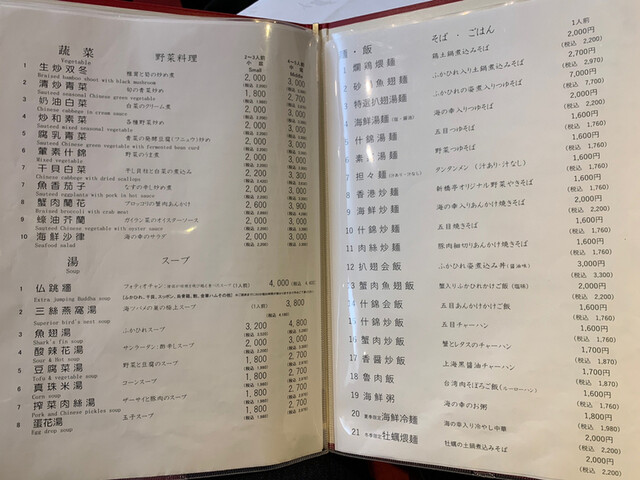 蔬菜 野菜料理 2〜3人前 4〜5人前
Vegetable 小 Small 中 Middle
1 生炒双冬 椎茸と筍の炒め煮 2,000 3,000
Braised bamboo shoot with black mushroom
2 清炒青菜 旬の青菜炒め 2,000 3,000
Sauteed seasonal Chinese green vegetable
3 奶油白菜 白菜のクリーム煮 2,000 3,000
Chinese cabbage in cream sauce
4 炒和素菜 各種野菜炒め 2,000 3,000
Sauteed mixed seasonal vegetable
5 腐乳青菜 青菜の発酵豆腐(フニュウ)炒め 2,000 3,000
Sauteed Chinese green vegetable with fermented bean curd
6 葷素什錦 野菜のうま煮 2,000 3,000
Mixed vegetable
7 干貝白菜 干し貝柱と白菜の煮込み 2,200 3,300
Chinese cabbage with dried scallops
8 魚香茄子 なすの辛し炒め煮 2,000 3,000
Sauteed eggplants with pork in hot sauce
蟹肉蘭花 ブロッコリの蟹肉あんかけ 2,600 3,900
Braised broccoli with crab meat
9 蠔油芥蘭 ガイラン菜のオイスターソース 2,000 3,000
Sauteed vegetable with oyster sauce
10 海鮮沙律 海の幸のサラダ 2,000 3,000
Seafood salad
湯 スープ
Soup
1 仏跳牆 フォティオチャン (1人前) 4,000
Extra jumping Buddha soup
2 三絲燕窩湯 海ツバメの巣の極上スープ (1人前) 3,800
Superior bird's nest soup
3 魚翅湯 ふかひれスープ 3,200 4,800
Shark's fin soup
4 酸辣花湯 サンラータン:酢辛しスープ 2,000 3,000
Sour & Hot soup
5 豆腐菜湯 野菜と豆腐のスープ 1,800 2,700
Tofu & vegetable soup
6 真珠米湯 コーンスープ 1,800 2,700
Corn soup
7 搾菜肉絲湯 ザーサイと豚肉のスープ 1,800 2,700
Pork and Chinese pickles soup
8 蛋花湯 玉子スープ 1,800 2,700
Egg drop soup
麺・飯 そば・ごはん 1人前
1 爛鶏煨麺 鶏土鍋煮込みそば 2,000円 (税込 2,200)
2 砂鍋魚翅麺 ふかひれ入り土鍋煮込みそば 2,700円 (税込 2,970)
3 特選扒翅湯麺 ふかひれの姿煮入りつゆそば 7,000円 (税込 7,700)
4 海鮮湯麺(塩・醤油) 海の幸入りつゆそば 2,000円 (税込 2,200)
5 什錦湯麺 五目つゆそば 1,600円 (税込 1,760)
6 素菜湯麺 野菜つゆそば 1,600円 (税込 1,760)
7 担々麺 タンタンメン (汁あり・汁なし) 1,600円 (税込 1,760)
8 香港炒麺 新橋亭オリジナル野菜やきそば 1,600円 (税込 1,760)
9 海鮮炒麺 海の幸入りあんかけ焼きそば 2,000円 (税込 2,200)
10 什錦炒麺 五目焼きそば 1,600円 (税込 1,760)
11 肉絲炒麺 豚肉細切りあんかけ焼きそば 1,600円 (税込 1,760)
12 扒翅会飯 ふかひれ姿煮込み丼(醤油味) 3,000円 (税込 3,300)
13 蟹肉魚翅飯 蟹入りふかひれかけご飯(塩味) 2,000円 (税込 2,200)
14 什錦会飯 五目あんかけご飯 1,600円 (税込 1,760)
15 什錦炒飯 五目チャーハン 1,600円 (税込 1,760)
16 蟹肉炒飯 蟹とレタスのチャーハン 1,700円 (税込 1,870)
17 香醤炒飯 上海黒醤油チャーハン 1,600円 (税込 1,760)
18 魯肉飯 台湾肉そぼろご飯(ルーローハン) 1,700円 (税込 1,870)
19 海鮮粥 海の幸のお粥 1,600円 (税込 1,760)
20 夏季限定 海鮮冷麺 海の幸入り冷やし中華 1,800円 (税込 1,980)
21 冬季限定 牡蠣煨麺 牡蠣の土鍋煮込みそば 2,000円 (税込 2,200)